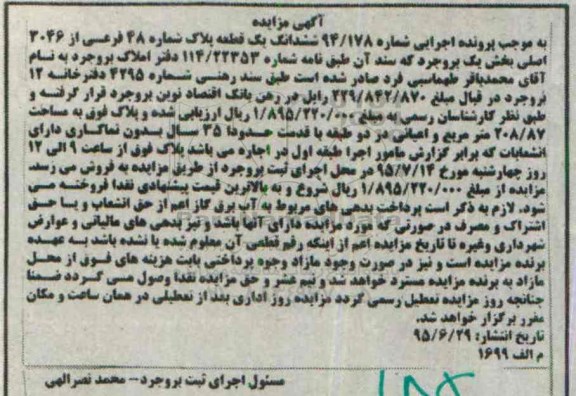 آگهی مزایده
به موجب پرونده اجرایی شماره ۹۴/۱۷۸ ششدانگ یک قطعه پلاک شماره ۴۸ فرعی از ۳۰۴۶
اصلی بخش یک بروجرد که سند آن طبق نامه شماره ۱۱۴/۲۲۳۵۳ دفتر املاک بروجرد به نام
آقای محمدباقر طهماسبی فرد صادر شده است طبق سند رهنی شماره ۴۲۹۵ دفترخانه ۱۲
بروجرد در قبال مبلغ ۲۲۹/۸۴۲/۸۷۰ رایل در رهن بانک اقتصاد نوین بروجرد قرار گرفته و
طبق نظر کارشناسان رسمی به مبلغ ۱/۸۹۵/۲۲۰/۰۰۰ ریال ارزیابی شده و پلاک فوق به مساحت
۲۰۸/۸۷ متر مربع و اعیانی در دو طبقه با قدمت حدودا ۳۵ سال بدون نماکاری دارای
انشعابات که برابر گزارش مامور اجرا طبقه اول در اجاره می باشد پلاک فوق از ساعت ۹ الی ۱۲
روز چهارشنبه مورخ ۹۵/۷/۱۴ در محل اجرای ثبت بروجرد از طریق مزایده به فروش می رسد.
مزایده از مبلغ ۱/۸۹۵/۲۲۰/۰۰۰ ریال شروع و به بالاترین قیمت پیشنهادی نقدا فروخته می
شود. لازم به ذکر است پرداخت بدهی های مربوط به آب برق گاز اعم از حق انشعاب و یا حق
اشتراک و مصرف در صورتی که مورد مزایده دارای آنها باشد و نیز بدهی های مالیاتی و عوارض
شهرداری وغیره تا تاریخ مزایده اعم از اینکه رقم قطعی آن معلوم شده یا نشده باشد به عهده
برنده مزایده است و نیز در صورت وجود مازاد وجوه پرداختی بابت هزینه های فوق از محل
مازاد به برنده مزایده مسترد خواهد شد و نیم عشر و حق مزایده نقدا وصول می گردد ضمنا
چنانچه روز مزایده تعطیل رسمی گردد مزایده روز اداری بعد از تعطیلی در همان ساعت و مکان
مقرر برگزار خواهد شد.
تاریخ انتشار: ۹۵/۶/۲۹
م الف ۱۶۹۹
مسئول اجرای ثبت بروجرد – محمد نصرالهی